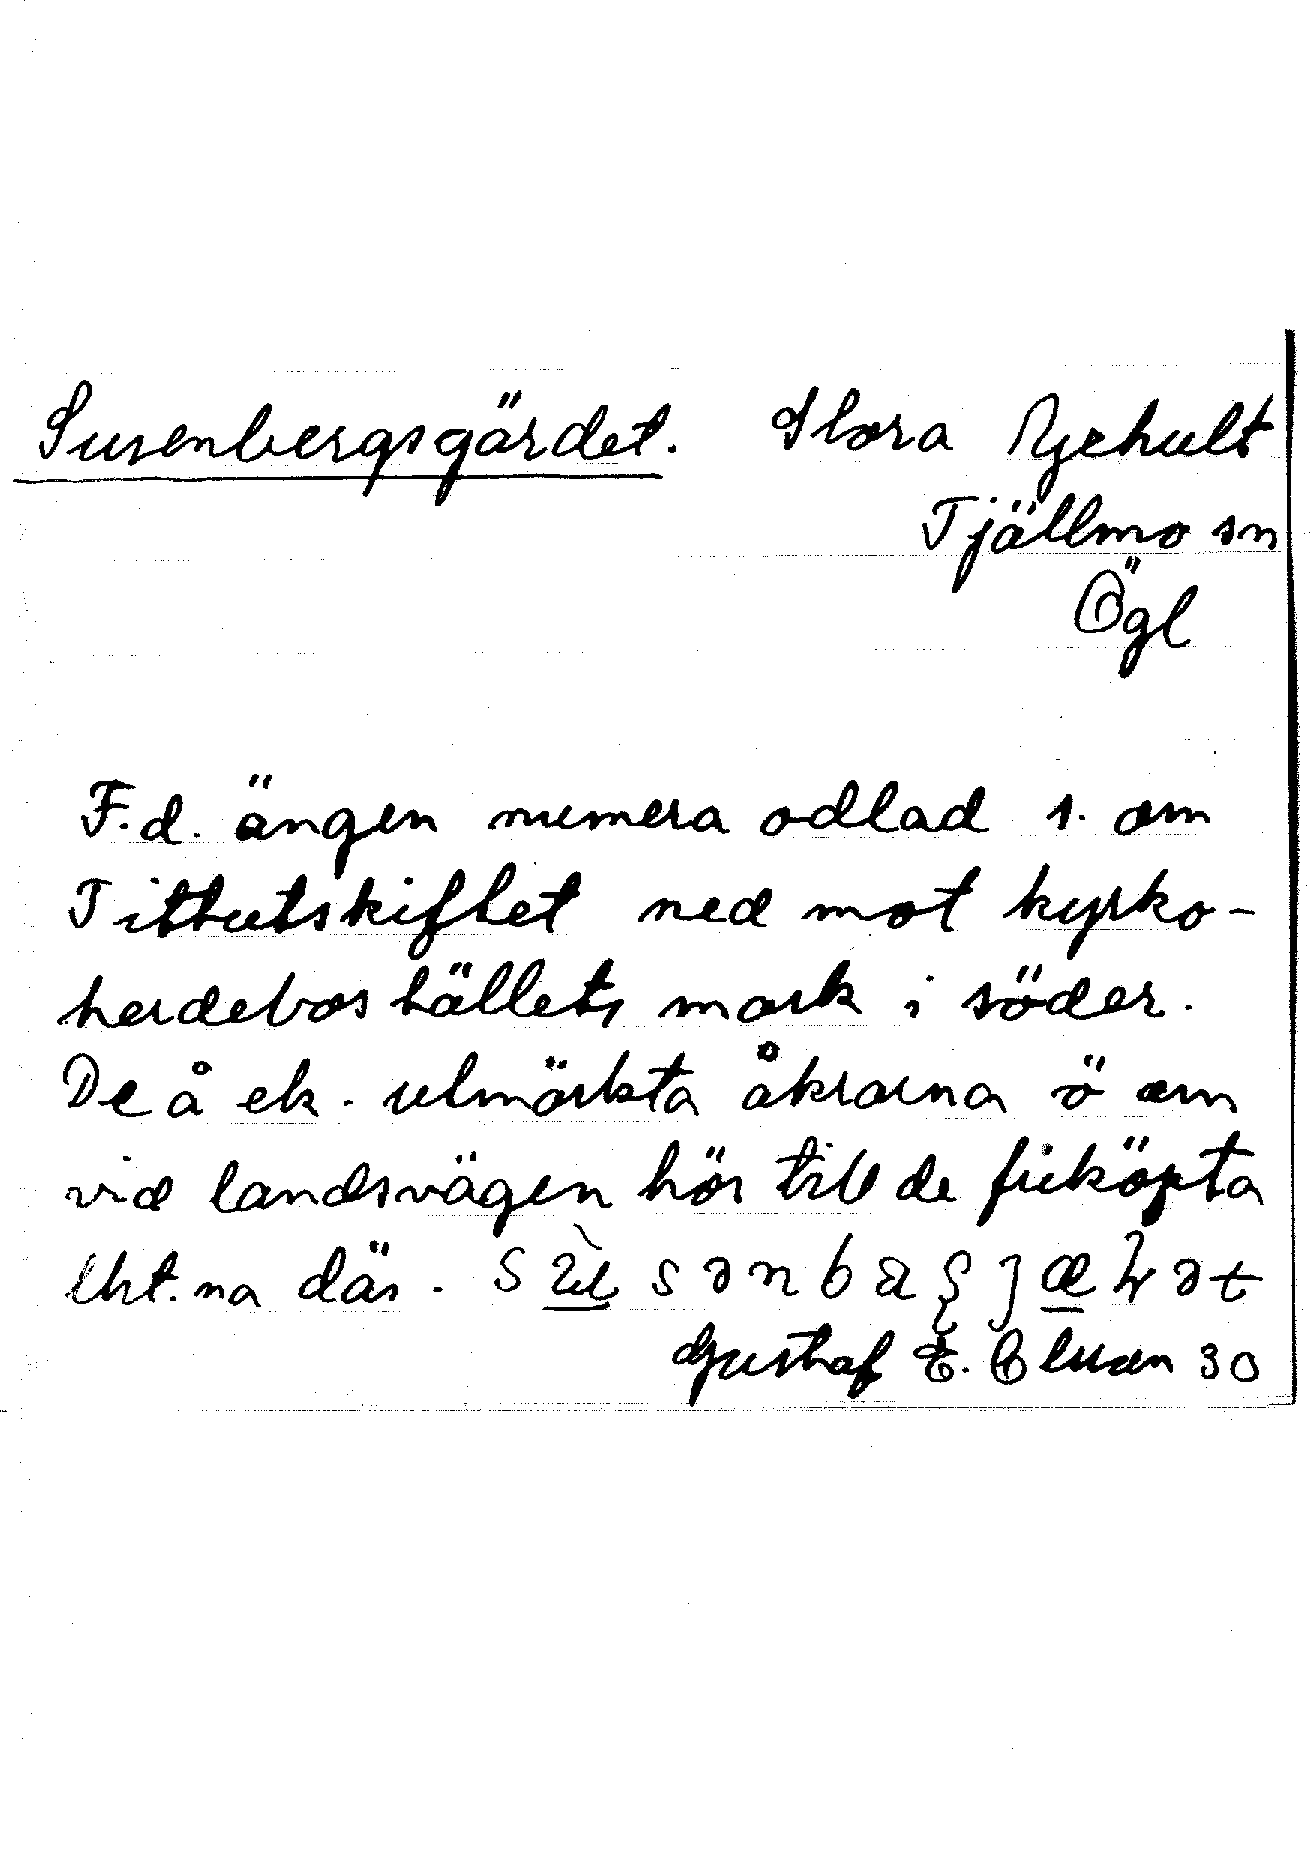 Susenbergsgärdet. Stora Nyehult
Tjällmo sn
Ögl
F.d. ängen numera odlad s. om
Tittutskiftet ned mot kyrko-
herdebos hällets mark i söder.
De å ek. utmärkta åkrarna ö om
vid landsvägen hör till de friköpta
lht.na där.
Gustaf E. 30